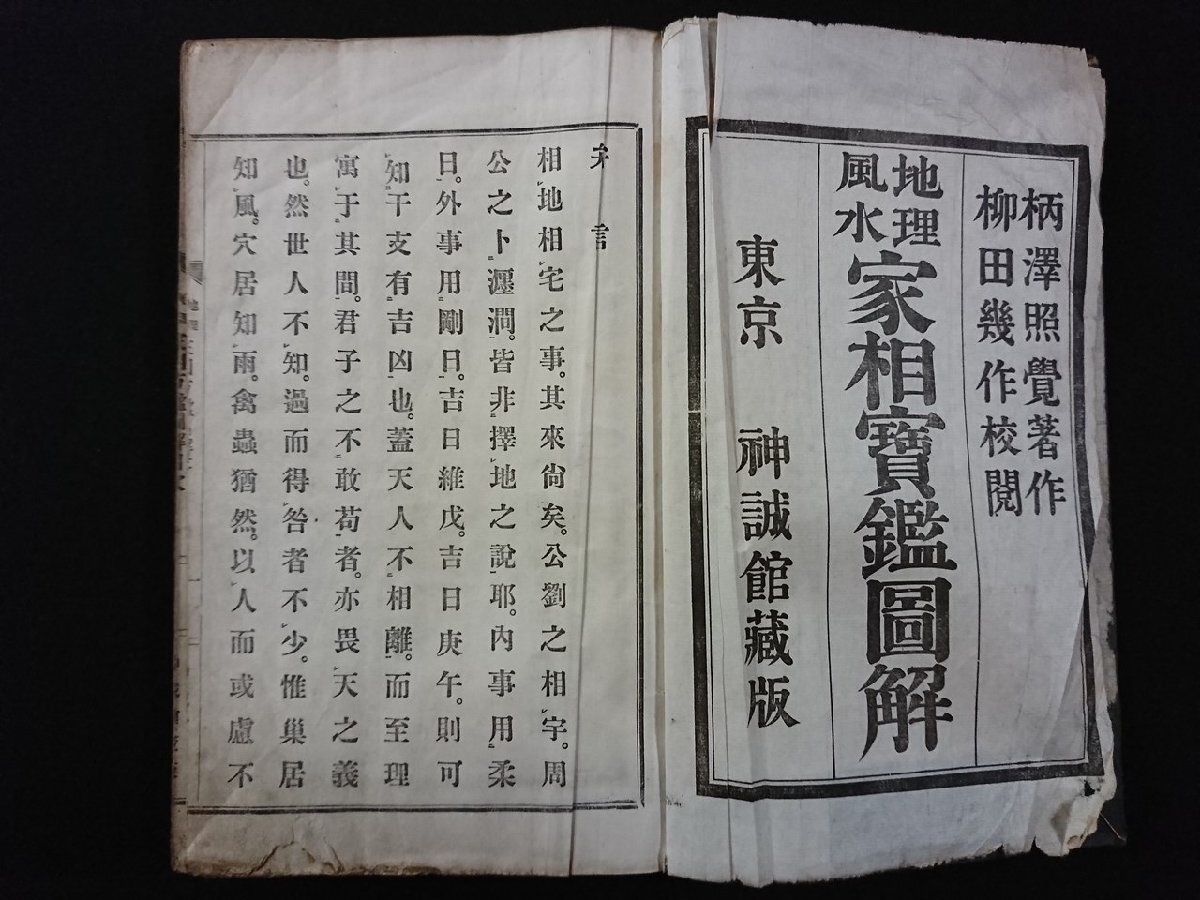 柄澤照覺著作
柳田幾作校閱
地理
風水
家相寶鑑圖解
東京 神誠館藏版
弁言
相地相宅之事。其來尙矣。公劉之相宇。周
公之卜瀍澗。皆非擇地之說耶。內事用柔
日。外事用剛日。吉日維戊。吉日庚午。則可
知干支有吉凶也。蓋天人不相離。而至理
寓于其間。君子之不敢苟者。亦畏天之義
也。然世人不知。過而得咎者不少。惟巢居
知風。穴居知雨。禽蟲猶然。以人而或慮不